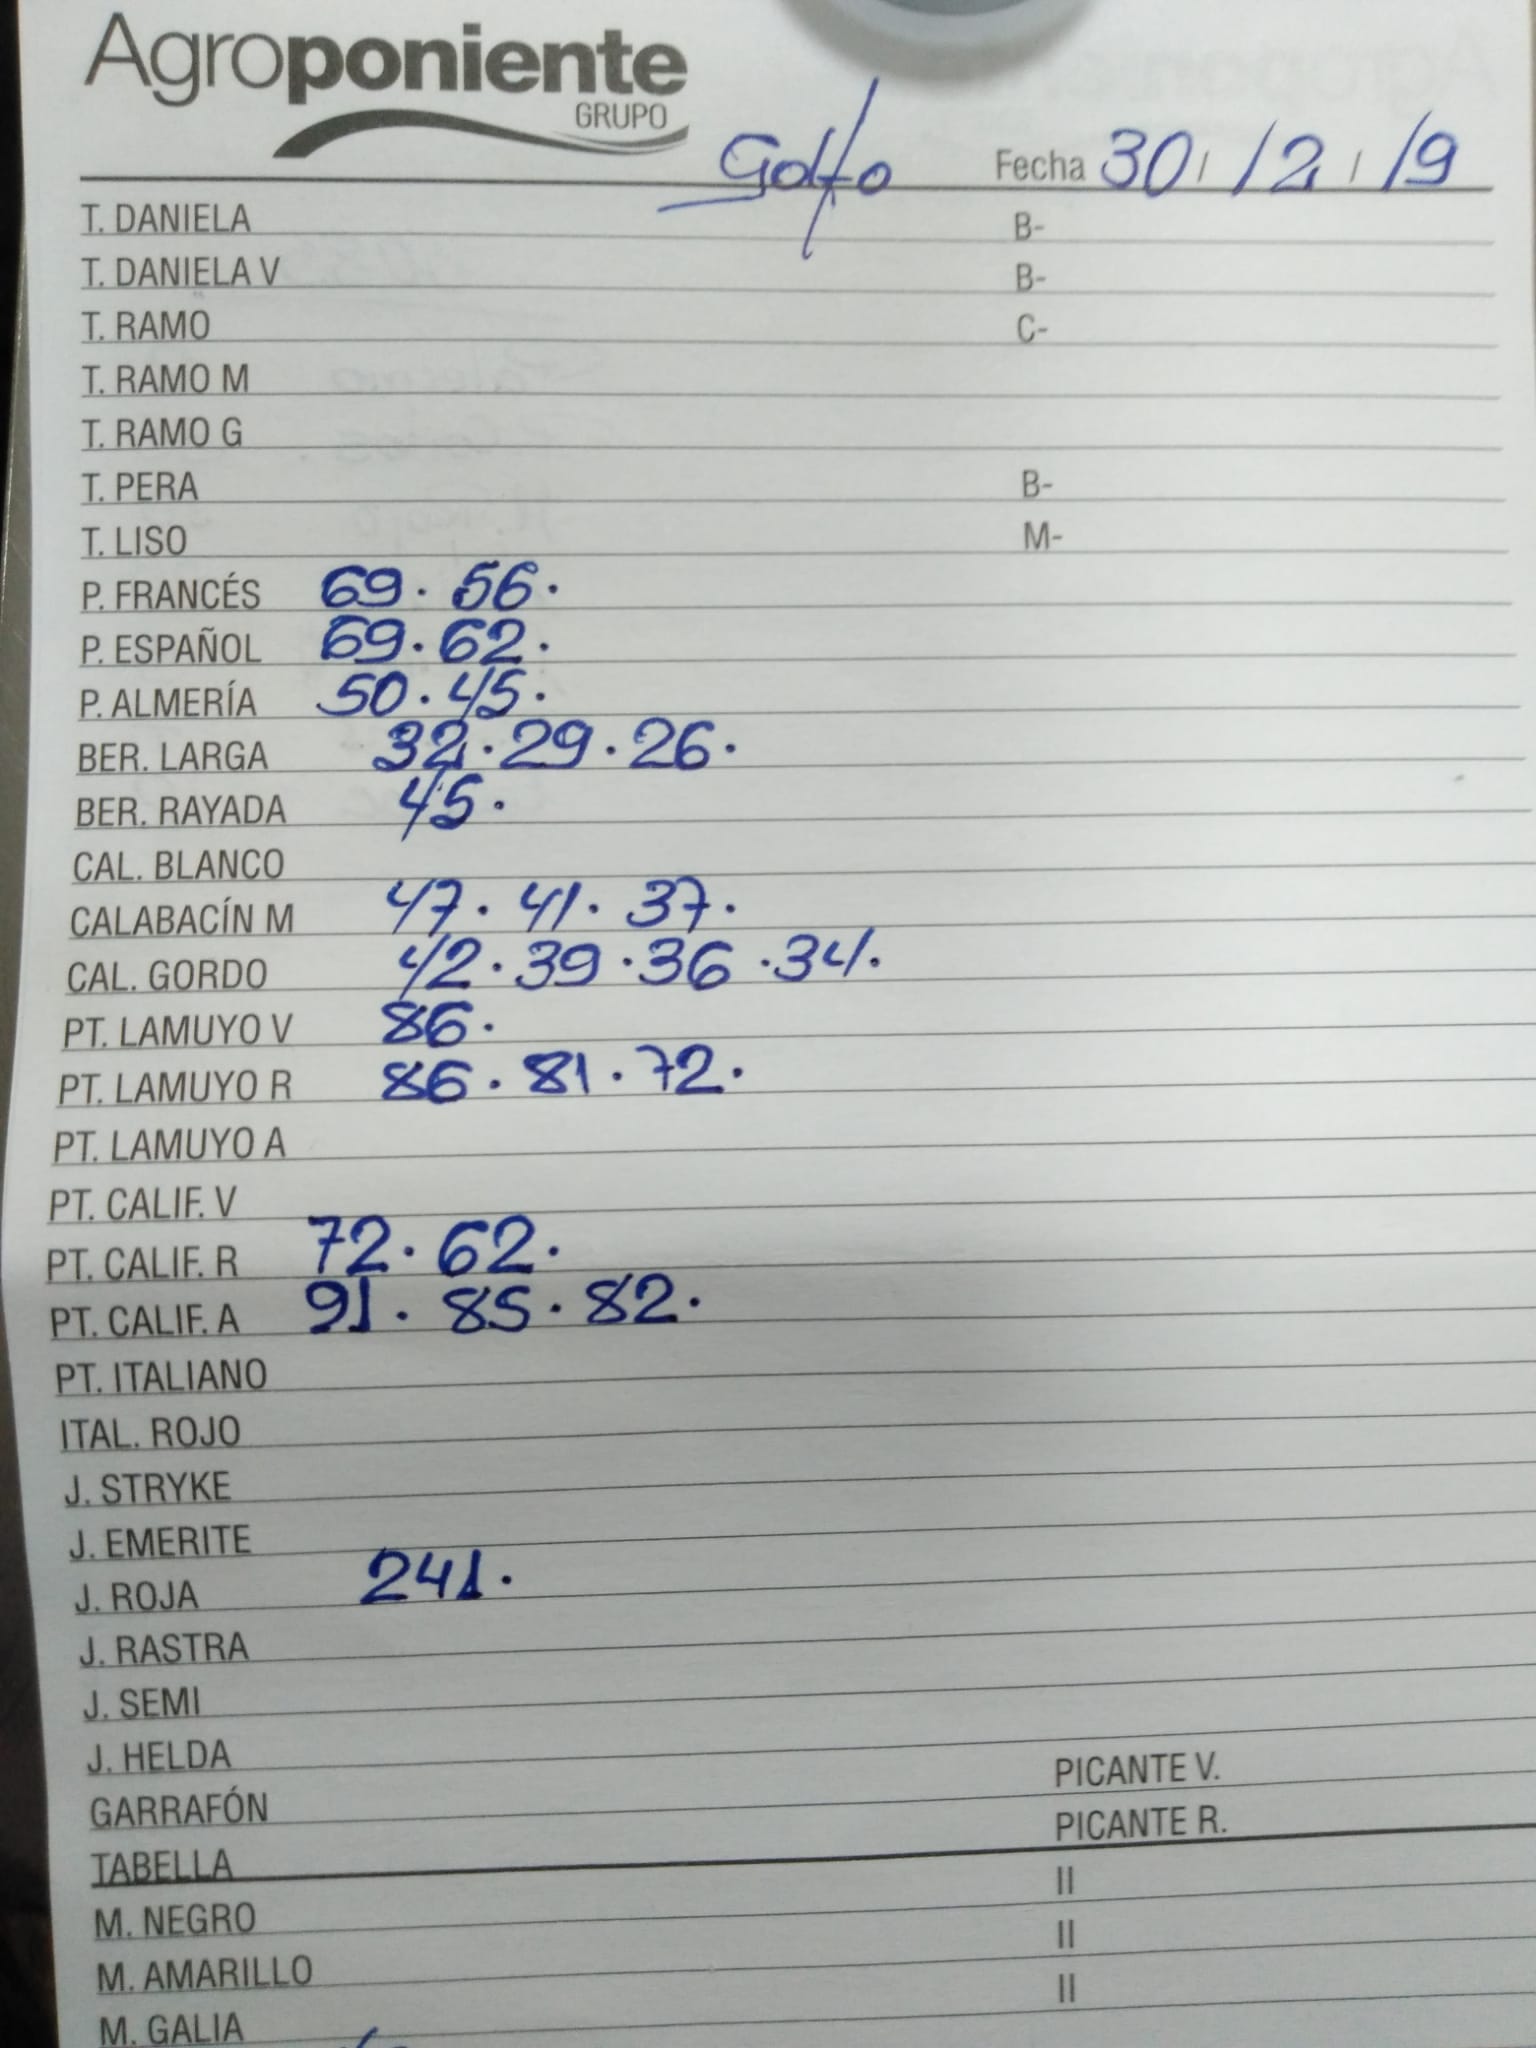 Agroponiente
GRUPO
Golfo Fecha 30/12/19
T. DANIELA B-
T. DANIELA V B-
T. RAMO C-
T. RAMO M
T. RAMO G
T. PERA B-
T. LISO M-
P. FRANCÉS 69. 56.
P. ESPAÑOL 69. 62.
P. ALMERÍA 50. 45.
BER. LARGA 32. 29. 26.
BER. RAYADA 45.
CAL. BLANCO
CALABACÍN M 47. 41. 37.
CAL. GORDO 42. 39. 36. 34.
PT. LAMUYO V 86.
PT. LAMUYO R 86. 81. 72.
PT. LAMUYO A
PT. CALIF. V
PT. CALIF. R 72. 62.
PT. CALIF. A 91. 85. 82.
PT. ITALIANO
ITAL. ROJO
J. STRYKE
J. EMERITE
J. ROJA 241.
J. RASTRA
J. SEMI
J. HELDA
GARRAFÓN PICANTE V.
TABELLA PICANTE R.
M. NEGRO II
M. AMARILLO II
M. GALIA II